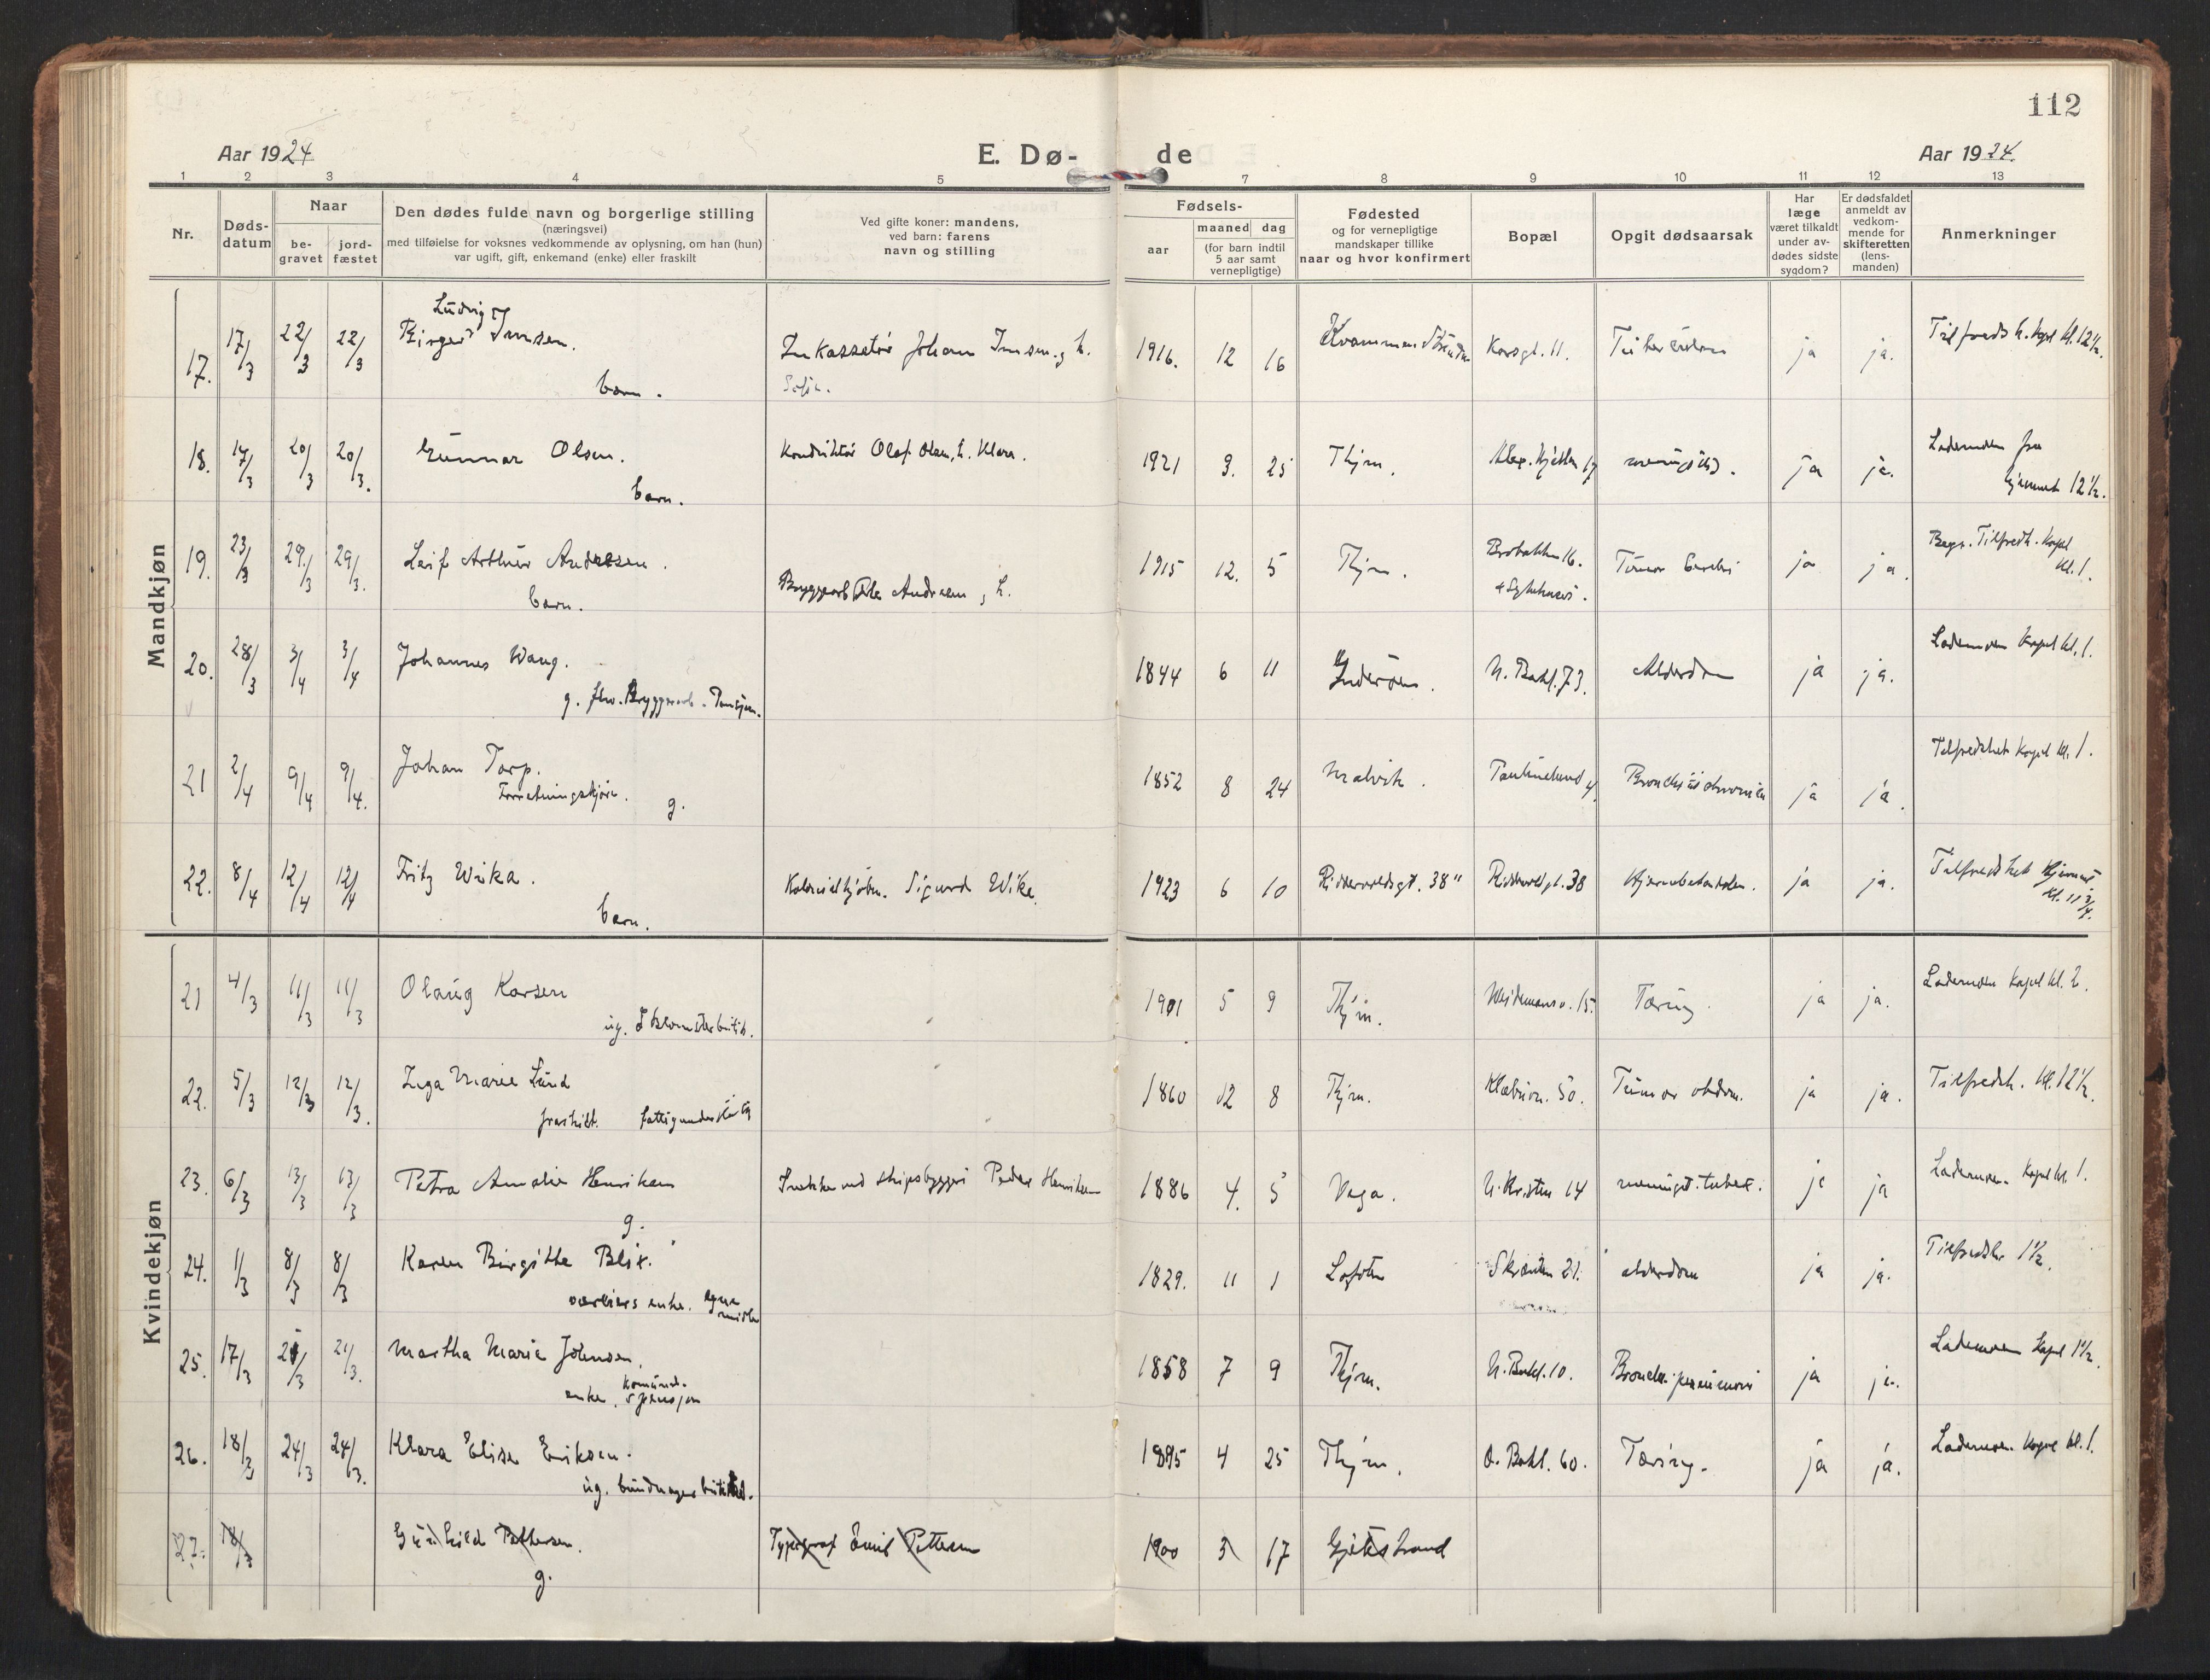 112
Aar 1924
E. Dø-
de
Aar 1924.
1 2 3 4 5 7 8 9 10 11 12 13
Nr.
Døds-
datum
Naar
be-
gravet
jord-
fæstet
Den dødes fulde navn og borgerlige stilling
(næringsvei)
med tilføielse for voksnes vedkommende av oplysning, om han (hun)
var ugift, gift, enkemand (enke) eller fraskilt
Ved gifte koner: mandens,
ved barn: farens
navn og stilling
Fødsels-
aar
maaned dag
(for barn indtil
5 aar samt
vernepligtige)
Fødested
og for vernepligtige
mandskaper tillike
naar og hvor konfirmert
Bopæl
Opgit dødsaarsak
Har
læge
været tilkaldt
under av-
dødes sidste
sygdom?
Er dødsfaldet
anmeldt av
vedkom-
mende for
skifteretten
(lens-
manden)
Anmerkninger
Mandkjøn
Ludvig
17. 17/3 22/3 22/3 Birger Imsen. Inkassatør Johan Imsen. og h. 1916. 12 16 Korsgt. 11. ja ja.
barn. Sofie.
18. 17/3 20/3 20/3. Gunnar Olsen. Konduktør Olaf Olsen, h. Klara. 1921 9. 25 Thjm. ja ja. Lademoen fra
barn. hjemmet 12½.
19. 23/3 29/3 29/3. Leif Arthur Andresen. 1915 12. 5 Thjm. Brobakken 16. Tumor cerebri ja ja. Begr. Tilfredh. Kapel
kl. 1.
barn. Andresen, h.
20. 28/3 3/4 3/4 Johannes Wang. 1844 6 11 Inderøen. N. Bakl. 73. Alderdom ja ja. Lademoen Kapel kl. 1.
g. fhv. Bryggearb.
21 2/4 9/4 9/4. Johan Torp. 1852 8 24 Malvik. Paulinelund 4. ja ja. Tilfredshet Kapel kl. 1.
g.
22. 8/4 12/4 12/4 Fritz Wika. Kolonialkjøbm. Sigurd Wika 1923 6 10 Riddervoldsgt. 38" Riddervoldsgt. 38 ja ja. Tilfredshet Hjemmet
kl. 11 3/4.
barn.
Kvindekjøn
21 4/3 11/3 11/3 Olaug Karsen 1901 5 9 Thjm. Weidemansv. 15. Tæring. ja ja. Lademoen Kapel kl. 2.
ug. I blomsterbutik.
22. 5/3 12/3 12/3. Inga Marie Lund 1860 12 8 Thjm. Klæbuv. 50. Tumor abdom. ja ja. Tilfredsh. kl. 12½.
fraskilt. fattigunderstøttet
23. 6/3 13/3 13/3 Petra Amalie Henriksen Peder Henriksen 1886 4. 5 Vega. N. Kristen 14 meningit. tuberk. ja ja Lademoen Kapel kl. 1.
g.
24. 1/3 8/3 8/3 Karen Birgitte Blix. 1829. 11 1 Lofoten Skrænten 21. alderdom ja ja. Tilfredsh. 1½.
væreiers enke. egne
midler
25. 17/3 21/3 21/3. Martha Marie Johnsen. 1858 7 9 Thjm. N. Bakl. 10. ja ja. Lademoen Kapel 1½.
enke. komunal-
pensjon
26. 18/3 24/3 24/3. Klara Elise Eriksen. 1895 4 25 Thjm. O. Bakl. 60. Tæring. ja ja. Lademoen Kapel kl. 1.
ug. bundmager butikk.
27. 18/3 Gunhild Pettersen. Typograf Emil Pettersen 1900 3 17 Gjetestrand
g.